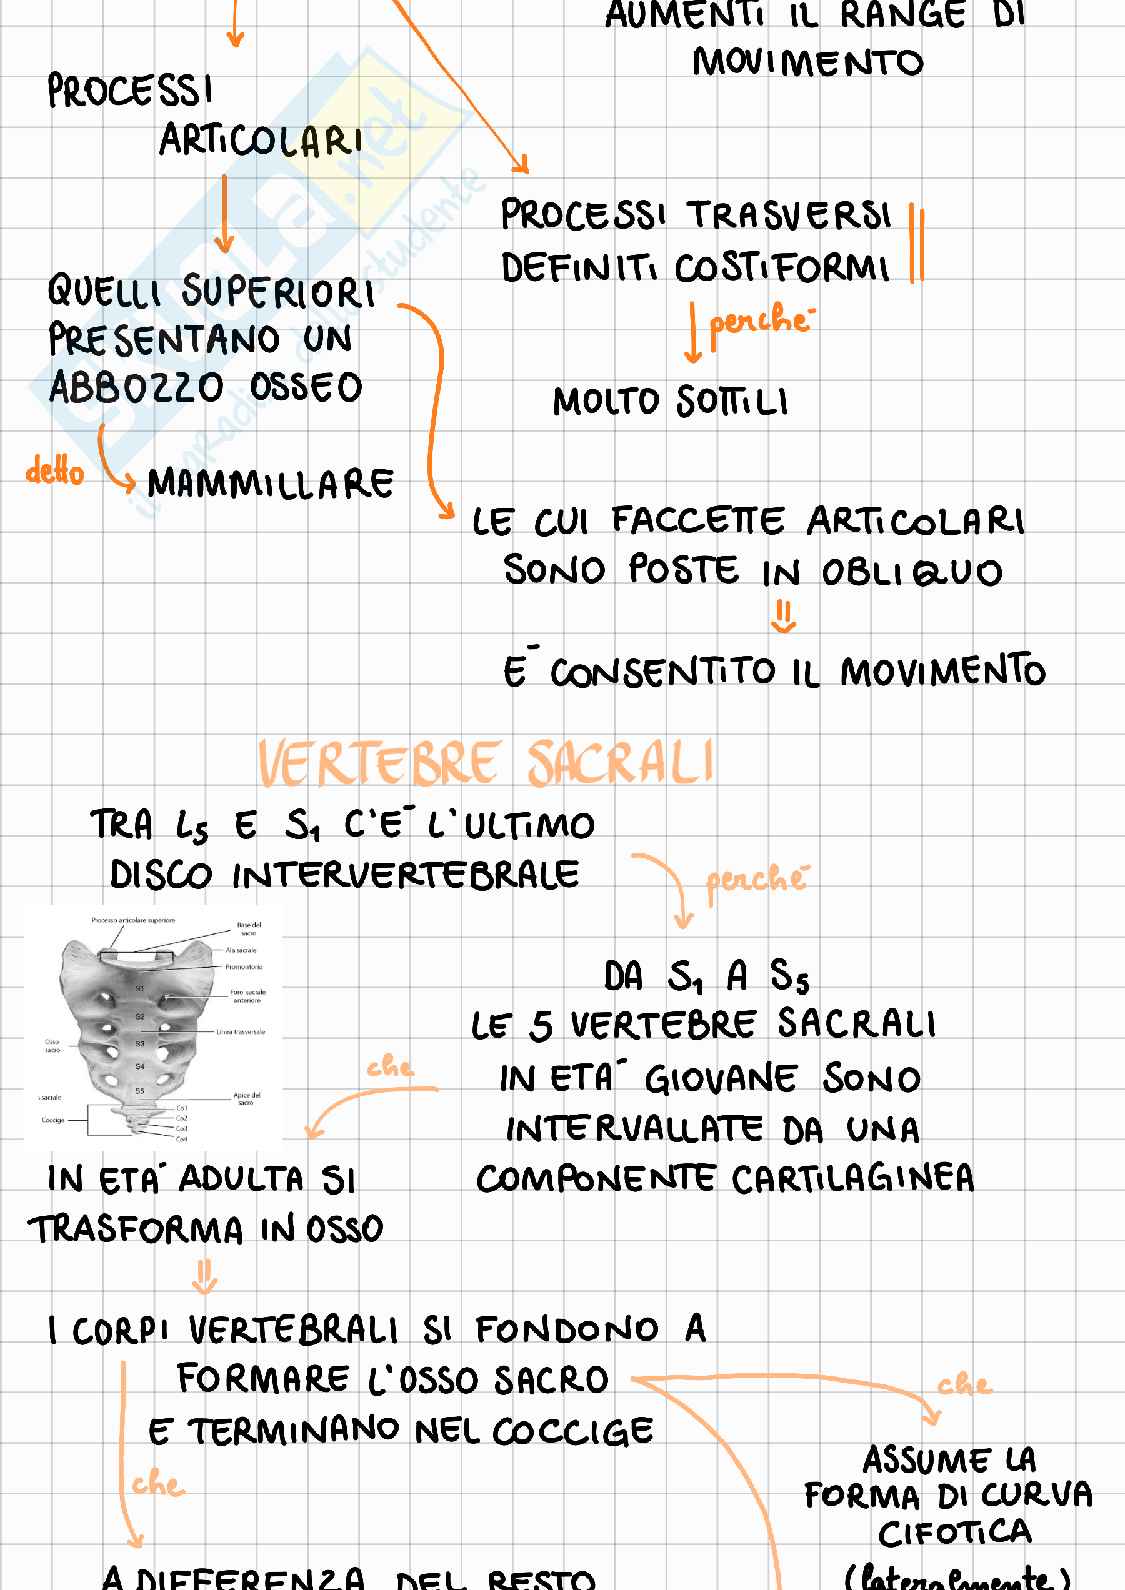 AUMENTI IL RANGE DI
MOVIMENTO
PROCESSI
ARTICOLARI
PROCESSI TRASVERSI
DEFINITI COSTIFORMI
perchē
MOLTO SOTTILI
QUELLI SUPERIORI
PRESENTANO UN
ABBOZZO OSSEO
detto
MAMMILLARE
LE CUI FACCETTE ARTICOLARI
SONO POSTE IN OBLIQUO
Ē CONSENTITO IL MOVIMENTO
VERTEBRE SACRALI
TRA L5 E S1 C'Ē L'ULTIMO
DISCO INTERVERTEBRALE
perchē
Processo articolare superiore
Base del
sacro
Ala sacrale
Promontorio
Foro sacrale
anteriore
Linea trasversale
Osso
sacro
S1
S2
S3
S4
S5
sacrale
Apice del
sacro
Coccige
Co1
Co2
Co3
Co4
DA S1 A S5
LE 5 VERTEBRE SACRALI
IN ETĀ GIOVANE SONO
INTERVALLATE DA UNA
COMPONENTE CARTILAGINEA
che
IN ETĀ ADULTA SI
TRASFORMA IN OSSO
I CORPI VERTEBRALI SI FONDONO A
FORMARE L'OSSO SACRO
E TERMINANO NEL COCCIGE
che
ASSUME LA
FORMA DI CURVA
CIFOTICA
(lateralmente)
che
A DIFFERENZA DEL RESTO